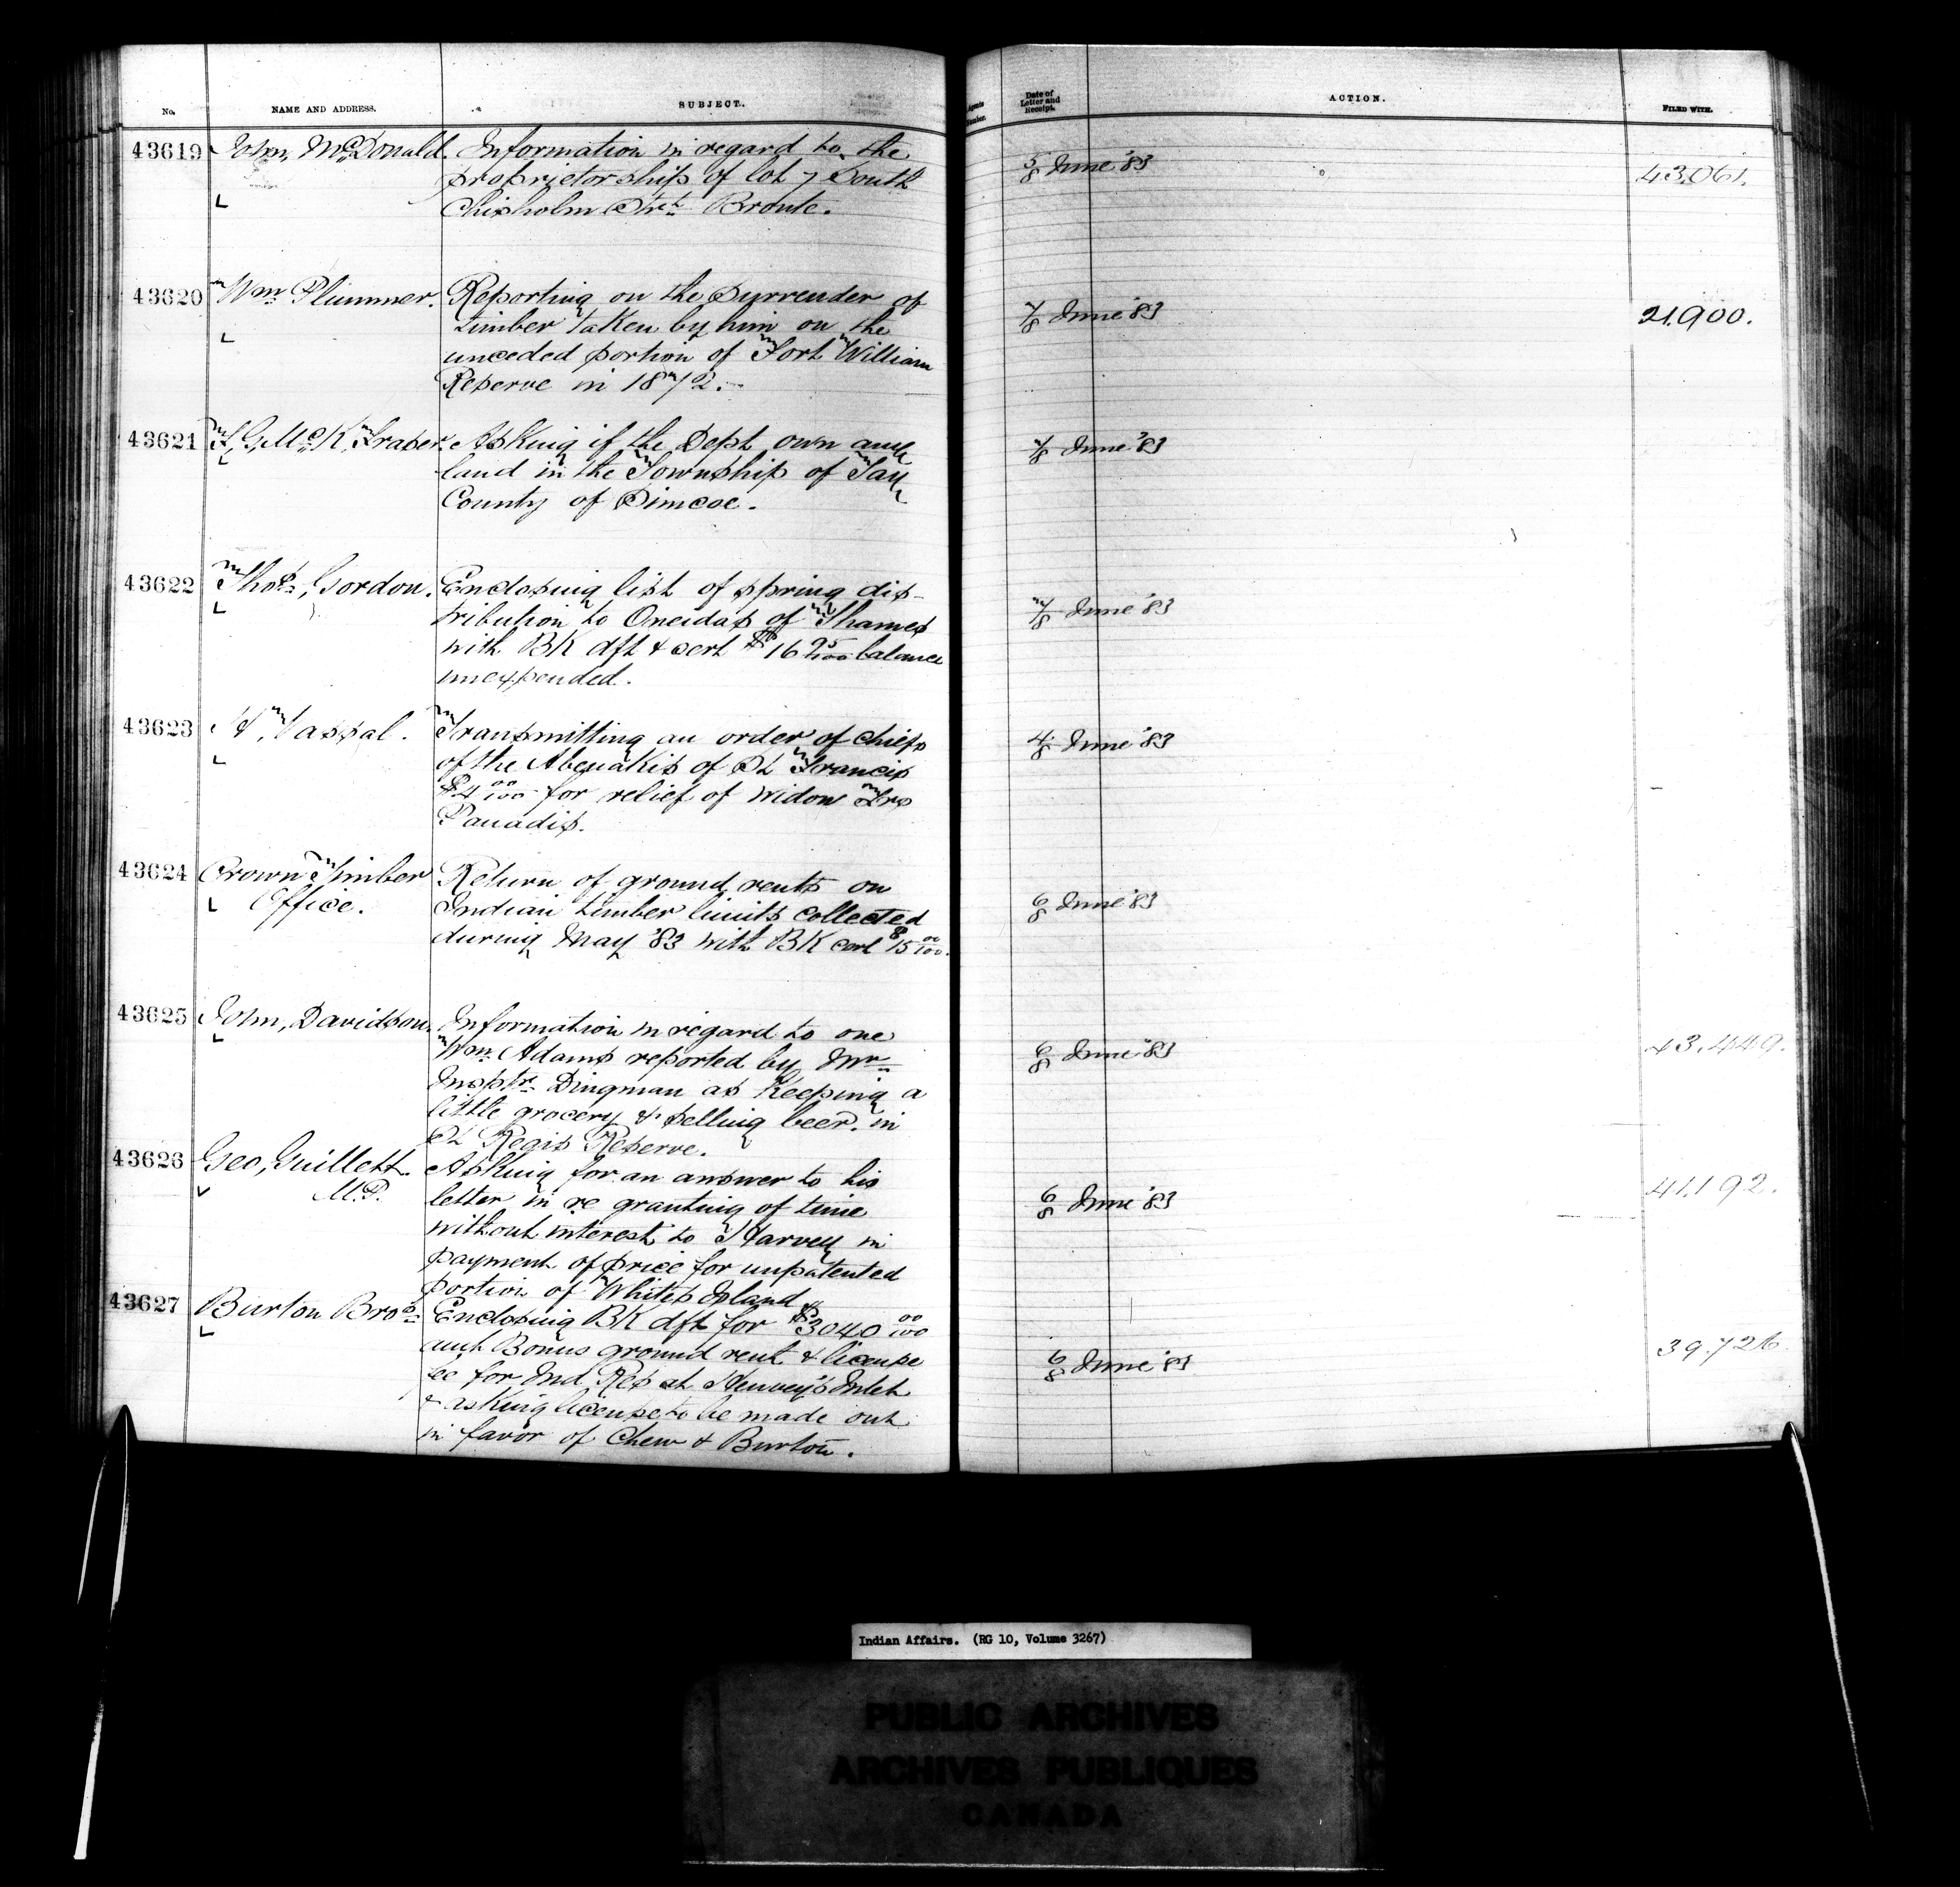 No. NAME AND ADDRESS. SUBJECT. Agents Number. Date of Letter and Receipt. ACTION. FILED WITH.
43619 John, McDonald. Information in regard to the
proprietorship of lot 7 South
Chisholm Strt Bronte.
5/8 June '83 43,061.
43620 Wm Plummer. Reporting on the surrender of
timber taken by him on the
unceded portion of Fort William
Reserve in 1872.
7/8 June '83 21,900.
43621 McK, Fraser. Asking if the Dept own any
land in the Township of Tay
County of Simcoe.
7/8 June '83
43622 Thos, Gordon. Enclosing list of spring dis-
tribution to Oneidas of Thames
with BK dft & cert $16 25/100 balance
unexpended.
7/8 June '83
43623 H, Vassal. Transmitting an order of Chiefs
of the Abenakis of St Francis
$4 00/100 for relief of widow Frs
Panadis.
4/8 June '83
43624 Crown Timber Return of ground rents on
Office. Indian timber limits collected
during May '83 with BK cert $15 00/100.
6/8 June '83
43625 John, Davidson. Information in regard to one
Wm Adams reported by Mr
Insptr Dingman as keeping a
little grocery & selling beer in
St Regis Reserve.
6/8 June '83 43,449.
43626 Geo, Guillett. Asking for an answer to his
M.P. letter in re granting of time
without interest to Harvey in
payment of price for unpatented
portion of Whites Island
6/8 June '83 41,192.
43627 Burton Bros Enclosing BK dft for $3040 00/100
amt Bonus ground rent & license
fee for Ind Res at Henvey's Inlet
& asking license to be made out
in favor of Chew & Burton.
6/8 June '83 39,726
Indian Affairs. (RG 10, Volume 3267)
PUBLIC ARCHIVES
ARCHIVES PUBLIQUES
CANADA